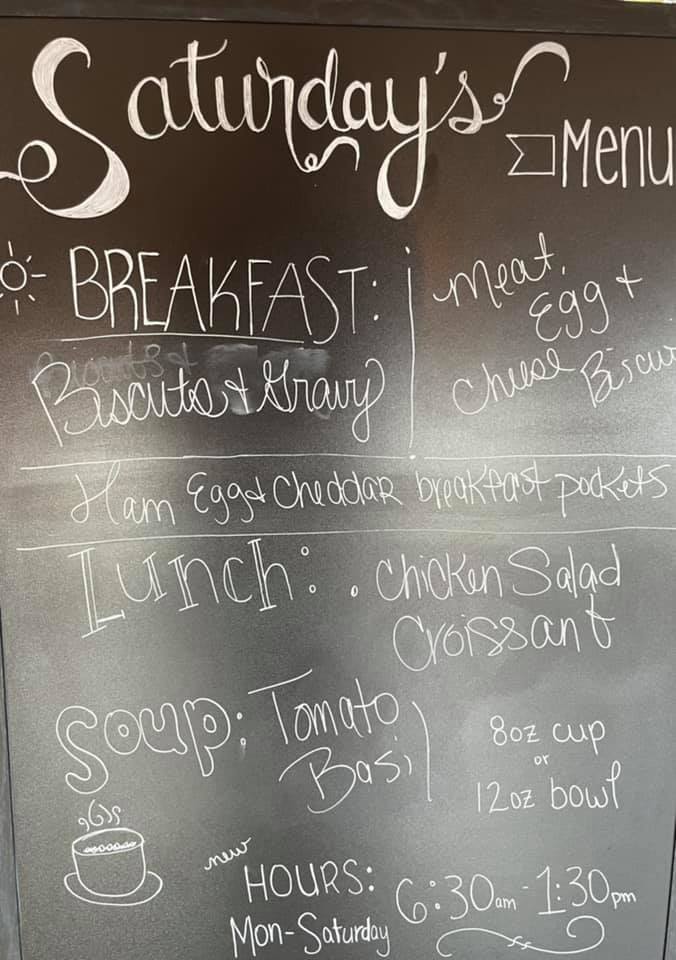 Saturday's
Menu
BREAKFAST:
Biscuits & Gravy
Meat,
Egg &
Cheese Biscu
Ham Egg & Cheddar breakfast pockets
Lunch: . Chicken Salad
Croissant
Soup: Tomato
Basi
8oz cup
or
12oz bowl
new
HOURS: 6:30am - 1:30pm
Mon-Saturday